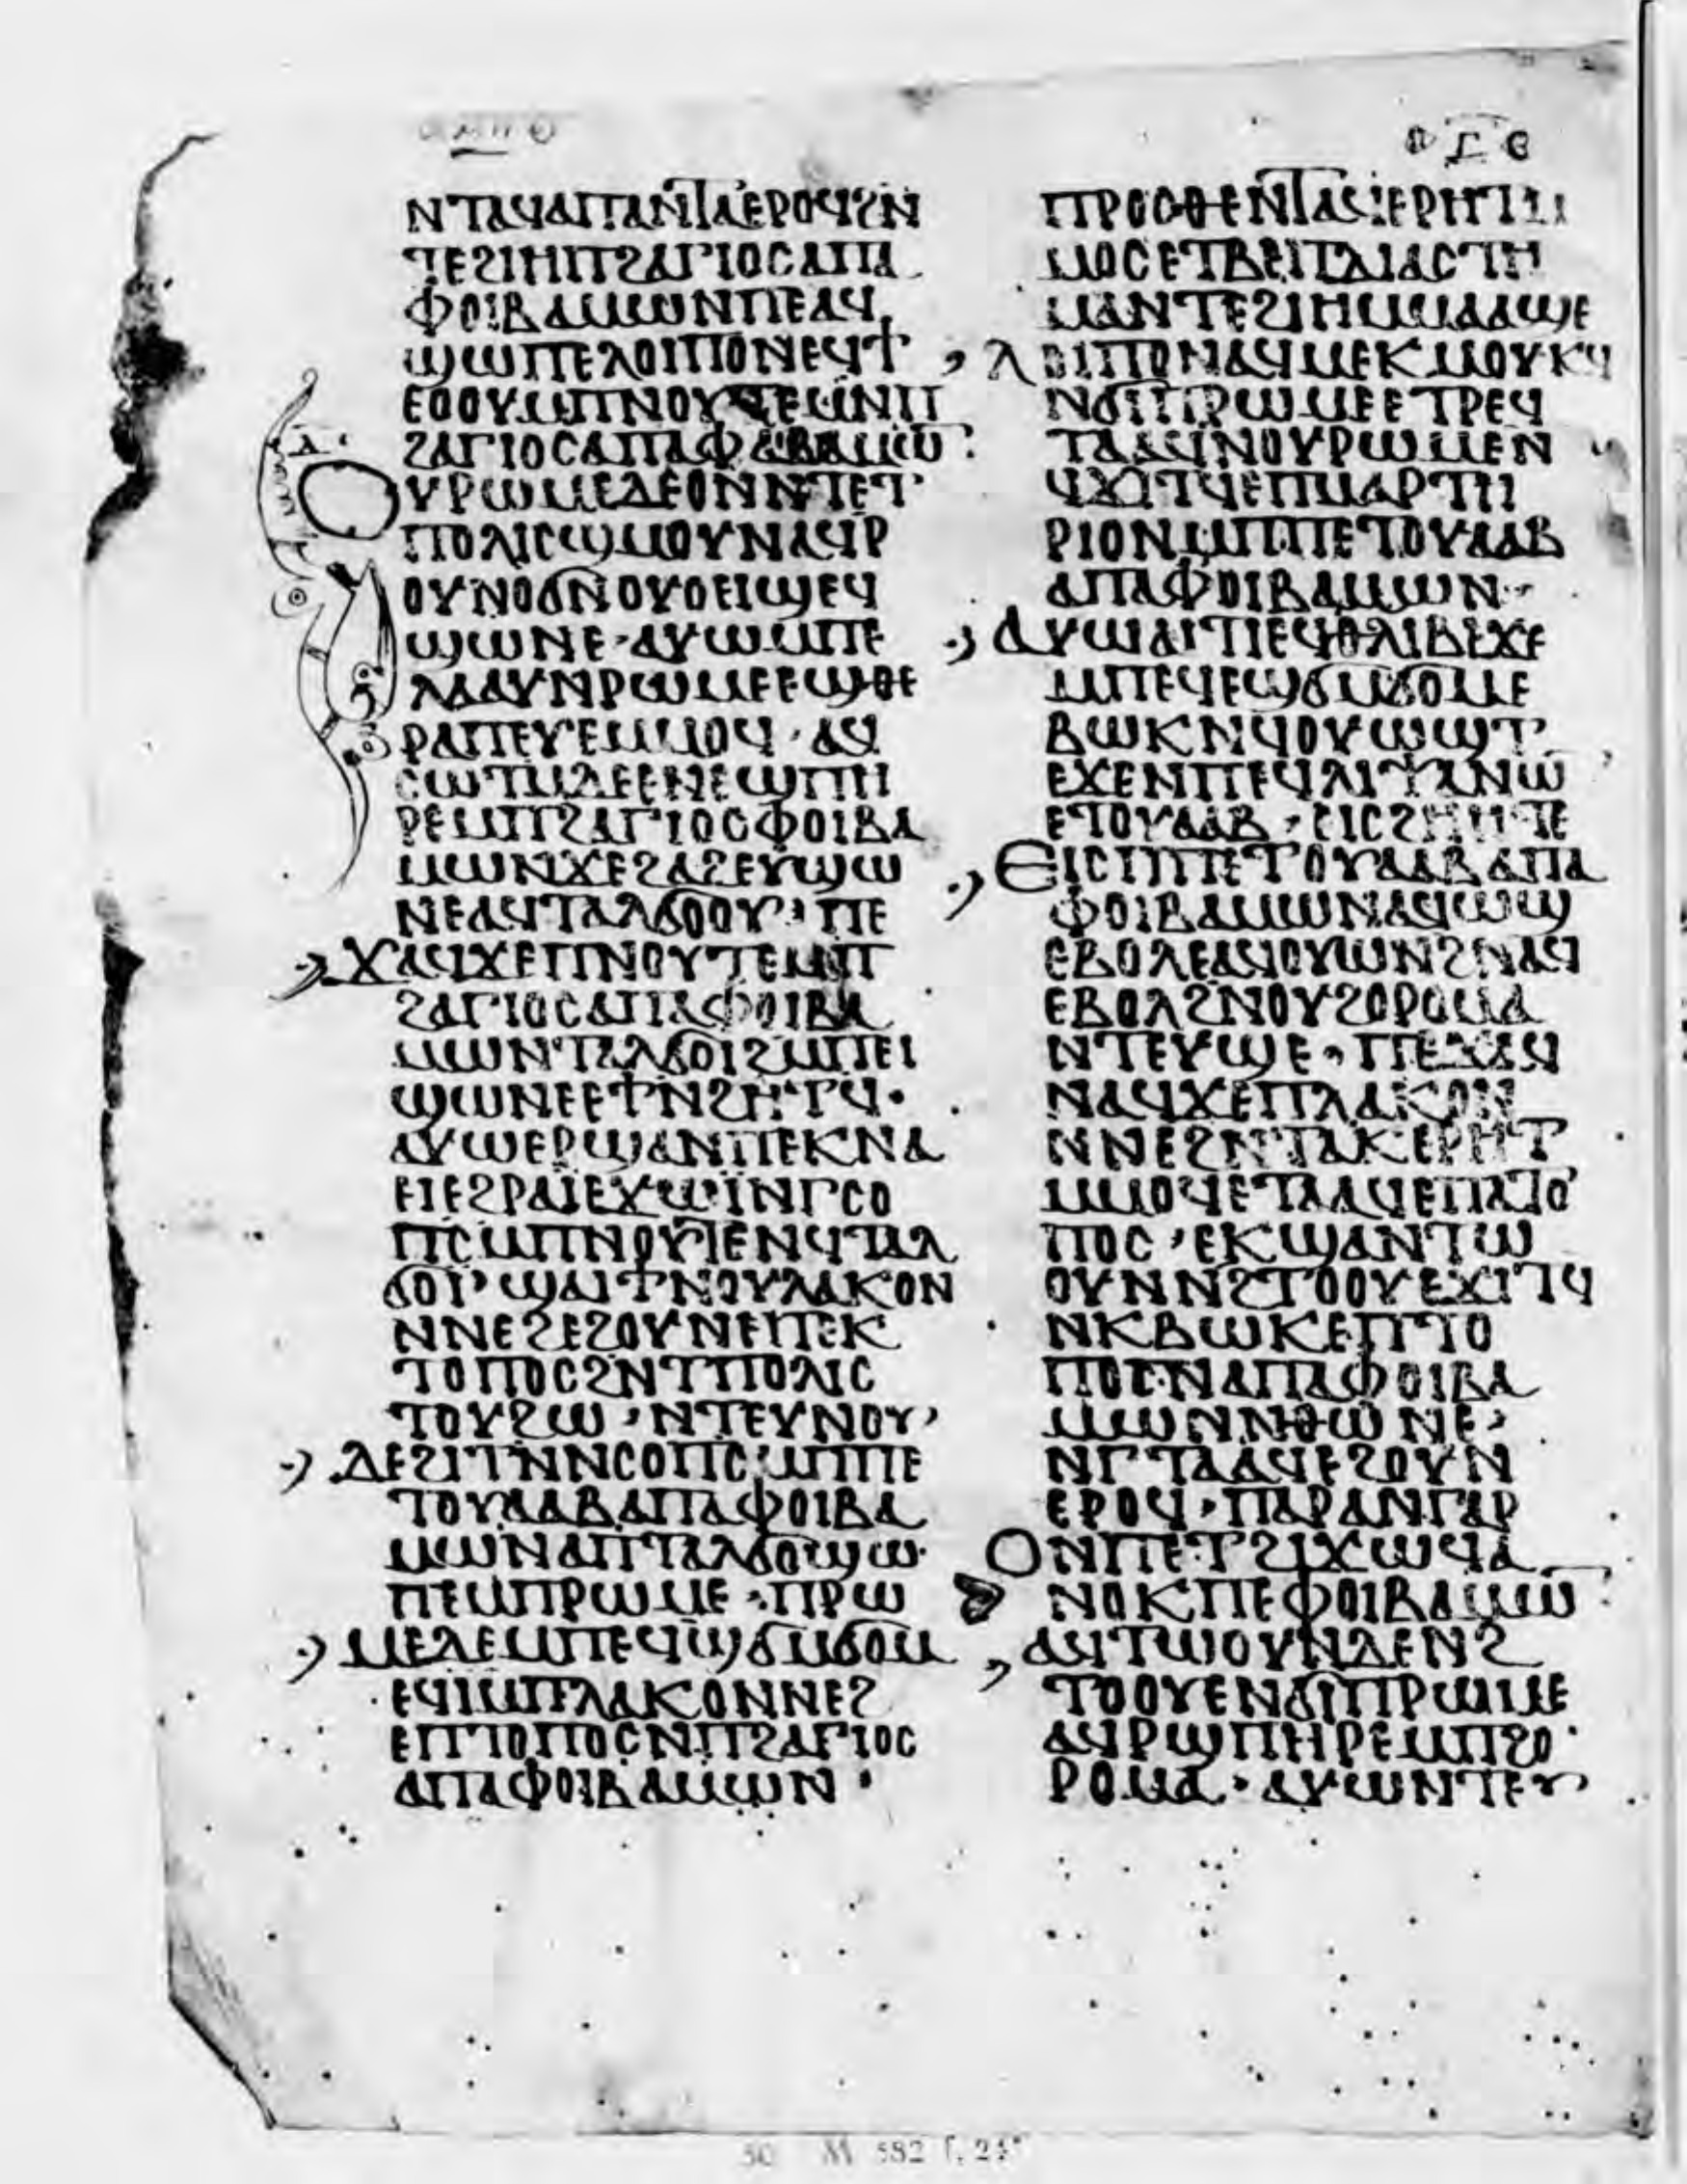 ⲛⲧⲁϥⲁⲡⲁⲛⲧⲁⲉⲣⲟϥϩⲛ
ⲧⲉϩⲓⲏⲡϩⲁⲅⲓⲟⲥⲁⲡⲁ
ⲫⲟⲓⲃⲁⲙⲱⲛⲡⲉⲁϥ
ϣⲱⲡⲉⲗⲟⲓⲡⲟⲛⲉϥϯ
ⲉⲟⲟⲩⲙⲡⲛⲟⲩⲧⲉⲙⲛⲡ
ϩⲁⲅⲓⲟⲥⲁⲡⲁⲫⲟⲓⲃⲁⲙⲱ̅:
ⲟⲩⲣⲱⲙⲉⲇⲉⲟⲛⲛⲧⲉⲧ
ⲡⲟⲗⲓⲥϣⲙⲟⲩⲛⲁϥⲣ
ⲟⲩⲛⲟϭⲛⲟⲩⲟⲉⲓϣⲉϥ
ϣⲱⲛⲉ·ⲁⲩⲱⲙⲡⲉ
ⲗⲁⲁⲩⲛⲣⲱⲙⲉⲉϣⲑⲉ
ⲣⲁⲡⲉⲩⲉⲙⲙⲟϥ·ⲁϥ
ⲥⲱⲧⲙⲇⲉⲉⲛⲉϣⲡⲏ
ⲣⲉⲙⲡϩⲁⲅⲓⲟⲥⲫⲟⲓⲃⲁ
ⲙⲱⲛϫⲉϩⲁϩⲉⲩϣⲱ
ⲛⲉⲁϥⲧⲁⲗϭⲟⲟⲩ·ⲡⲉ
ϫⲁϥϫⲉⲡⲛⲟⲩⲧⲉⲙⲡ
ϩⲁⲅⲓⲟⲥⲁⲡⲁⲫⲟⲓⲃⲁ
ⲙⲱⲛⲧⲁⲗϭⲟⲓϩⲙⲡⲉⲓ
ϣⲱⲛⲉⲉϯⲛϩⲏⲧϥ·
ⲁⲩⲱⲉⲣϣⲁⲛⲡⲉⲕⲛⲁ
ⲉⲓⲉϩⲣⲁⲓⲉϫⲱⲓⲛⲅⲥⲟ
ⲡⲥⲙⲡⲛⲟⲩⲧⲉⲛϥⲧⲁⲗ
ϭⲟⲓ·ϣⲁⲓϯⲛⲟⲩⲗⲁⲕⲟⲛ
ⲛⲛⲉϩⲉϩⲟⲩⲛⲉⲡⲉⲕ
ⲧⲟⲡⲟⲥϩⲛⲧⲡⲟⲗⲓⲥ
ⲧⲟⲩϩⲱ·ⲛⲧⲉⲩⲛⲟⲩ
ⲇⲉϩⲓⲧⲛⲛⲥⲟⲡⲥⲙⲡⲡⲉ
ⲧⲟⲩⲁⲁⲃⲁⲡⲁⲫⲟⲓⲃⲁ
ⲙⲱⲛⲁⲡⲧⲁⲗϭⲟϣⲱ
ⲡⲉⲙⲡⲣⲱⲙⲉ·ⲡⲣⲱ
ⲙⲉⲇⲉⲙⲡⲉϥϣϭⲙϭⲟⲙ
ⲉϥⲓⲙⲡⲗⲁⲕⲟⲛⲛⲉϩ
ⲉⲡⲧⲟⲡⲟⲥⲛⲡϩⲁⲅⲓⲟⲥ
ⲁⲡⲁⲫⲟⲓⲃⲁⲙⲱⲛ·
ⲣⲓⲑ
ⲡⲣⲟⲥⲑⲉⲛⲧⲁϥⲉⲣⲏⲧⲙ
ⲙⲟⲥⲉⲧⲃⲉⲡⲇⲓⲁⲥⲧⲏ
ⲙⲁⲛⲧⲉϩⲓⲏⲙⲙⲁⲁϣⲉ
ⲗⲟⲓⲡⲟⲛⲁϥⲙⲉⲕⲙⲟⲩⲕϥ
ⲛϭⲓⲡⲣⲱⲙⲉⲉⲧⲣⲉϥ
ⲧⲁⲁϥⲛⲟⲩⲣⲱⲙⲉⲛ
ϥϫⲓⲧϥⲉⲡⲙⲁⲣⲧⲏ
ⲣⲓⲟⲛⲙⲡⲡⲉⲧⲟⲩⲁⲁⲃ
ⲁⲡⲁⲫⲟⲓⲃⲁⲙⲱⲛ·
ⲁⲩⲱⲁⲓⲡⲉϥⲑⲗⲓⲃⲉϫⲉ
ⲙⲡⲉϥⲉϣϭⲙϭⲟⲙⲉ
ⲃⲱⲕⲛϥⲟⲩⲱϣⲧ
ⲉϫⲉⲛⲡⲉϥⲗⲓⲯⲁⲛⲱ
ⲉⲧⲟⲩⲁⲁⲃ·ⲉⲓⲥϩⲏⲏⲧⲉ
ⲉⲓⲥⲡⲡⲉⲧⲟⲩⲁⲁⲃⲁⲡⲁ
ⲫⲟⲓⲃⲁⲙⲱⲛⲁϥⲱϣ
ⲉⲃⲟⲗⲉⲁϥⲟⲩⲱⲛϩⲛⲁϥ
ⲉⲃⲟⲗϩⲛⲟⲩϩⲟⲣⲟⲙⲁ
ⲛⲧⲉⲩϣⲉ·ⲡⲉϫⲁϥ
ⲛⲁϥϫⲉⲡⲗⲁⲕⲟⲛ
ⲛⲛⲉϩⲛⲧⲁⲕⲉⲣⲏⲧ
ⲙⲙⲟϥⲉⲧⲁⲁϥⲉⲡⲁⲧⲟ
ⲡⲟⲥ·ⲉⲕϣⲁⲛⲧⲱ
ⲟⲩⲛⲛϩⲧⲟⲟⲩⲉϫⲓⲧϥ
ⲛⲕⲃⲱⲕⲉⲡⲧⲟ
ⲡⲟⲥⲛⲁⲡⲁⲫⲟⲓⲃⲁ
ⲙⲱⲛⲛⲑⲱⲛⲉ·
ⲛⲅⲧⲁⲁϥⲉϩⲟⲩⲛ
ⲉⲣⲟϥ·ⲡⲁⲣⲁⲛⲅⲁⲣ
ⲟⲛⲡⲉⲧϩⲓϫⲱϥⲁ
ⲛⲟⲕⲡⲉⲫⲟⲓⲃⲁⲙⲱ̅:
ⲁϥⲧⲱⲟⲩⲛⲇⲉⲛϩ
ⲧⲟⲟⲩⲉⲛϭⲓⲡⲣⲱⲙⲉ
ⲁϥⲣϣⲡⲏⲣⲉⲙⲡϩⲟ
ⲣⲟⲙⲁ·ⲁⲩⲱⲛⲧⲉⲩ
M 582 f. 24